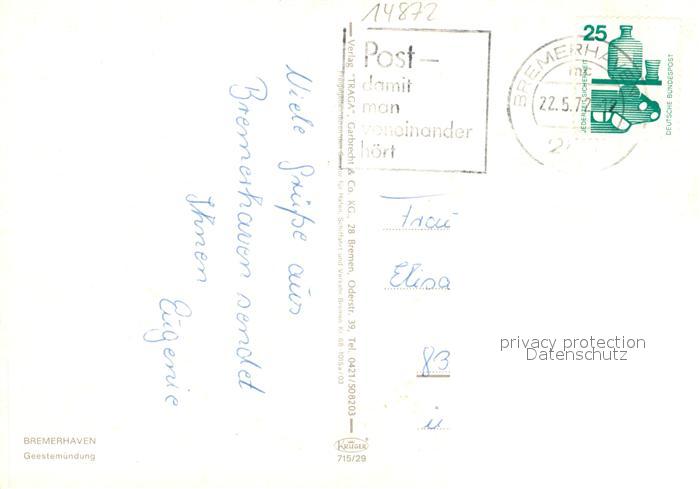 14872
Post –
damit
man
voneinander
hört
BREMERHAVEN
22.5.72
25
JEDERZEIT SICHERHEIT
DEUTSCHE BUNDESPOST
Viele Grüße aus
Bremerhaven sendet
Ihnen
Eugenie
Verlag "TRAGA", Garbrecht & Co. KG., 28 Bremen, Oderstr. 39, Tel. 0421/508203
Frau
Elisa
83
privacy protection
Datenschutz
BREMERHAVEN
Geestemündung
KRÜGER
715/29